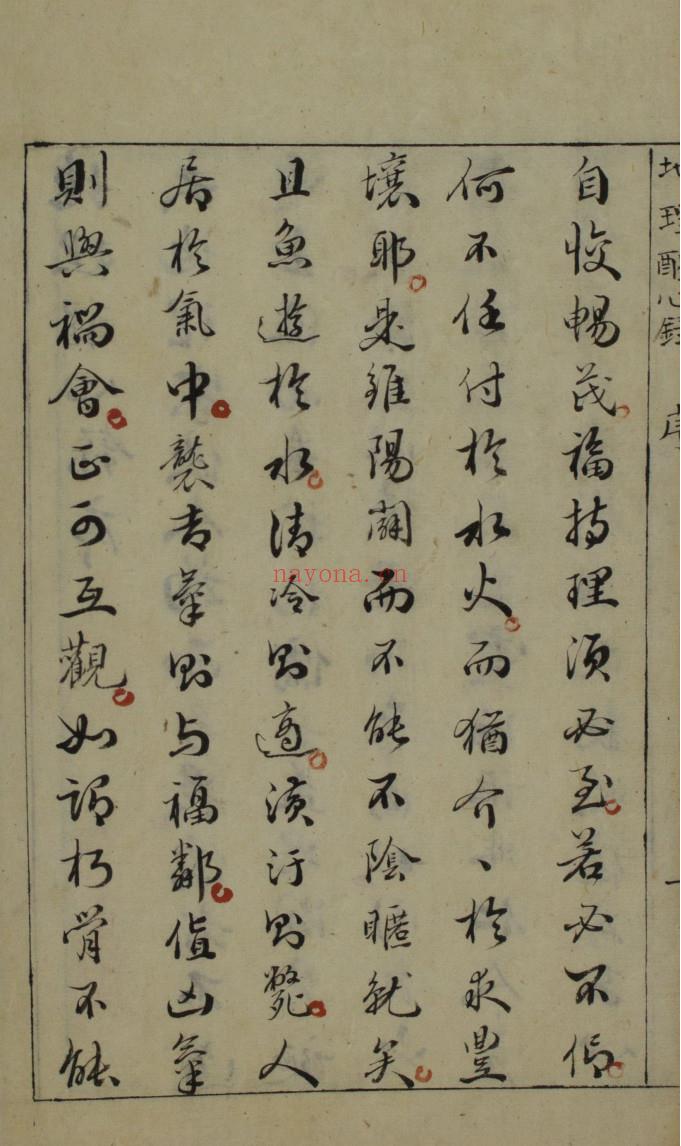 地理醒心錄 序 一
自悛暢茂福持理須必至若必不信
何不任付於水火而猶介〻於求豐
壤耶是雖陽闢而不能不陰暱就矣
且魚遊於水清冷則適潢汙則斃人
居於氣中襲吉氣則与福鄰值凶氣
則與禍會正可互觀如謂朽骨不能
nayona.cn